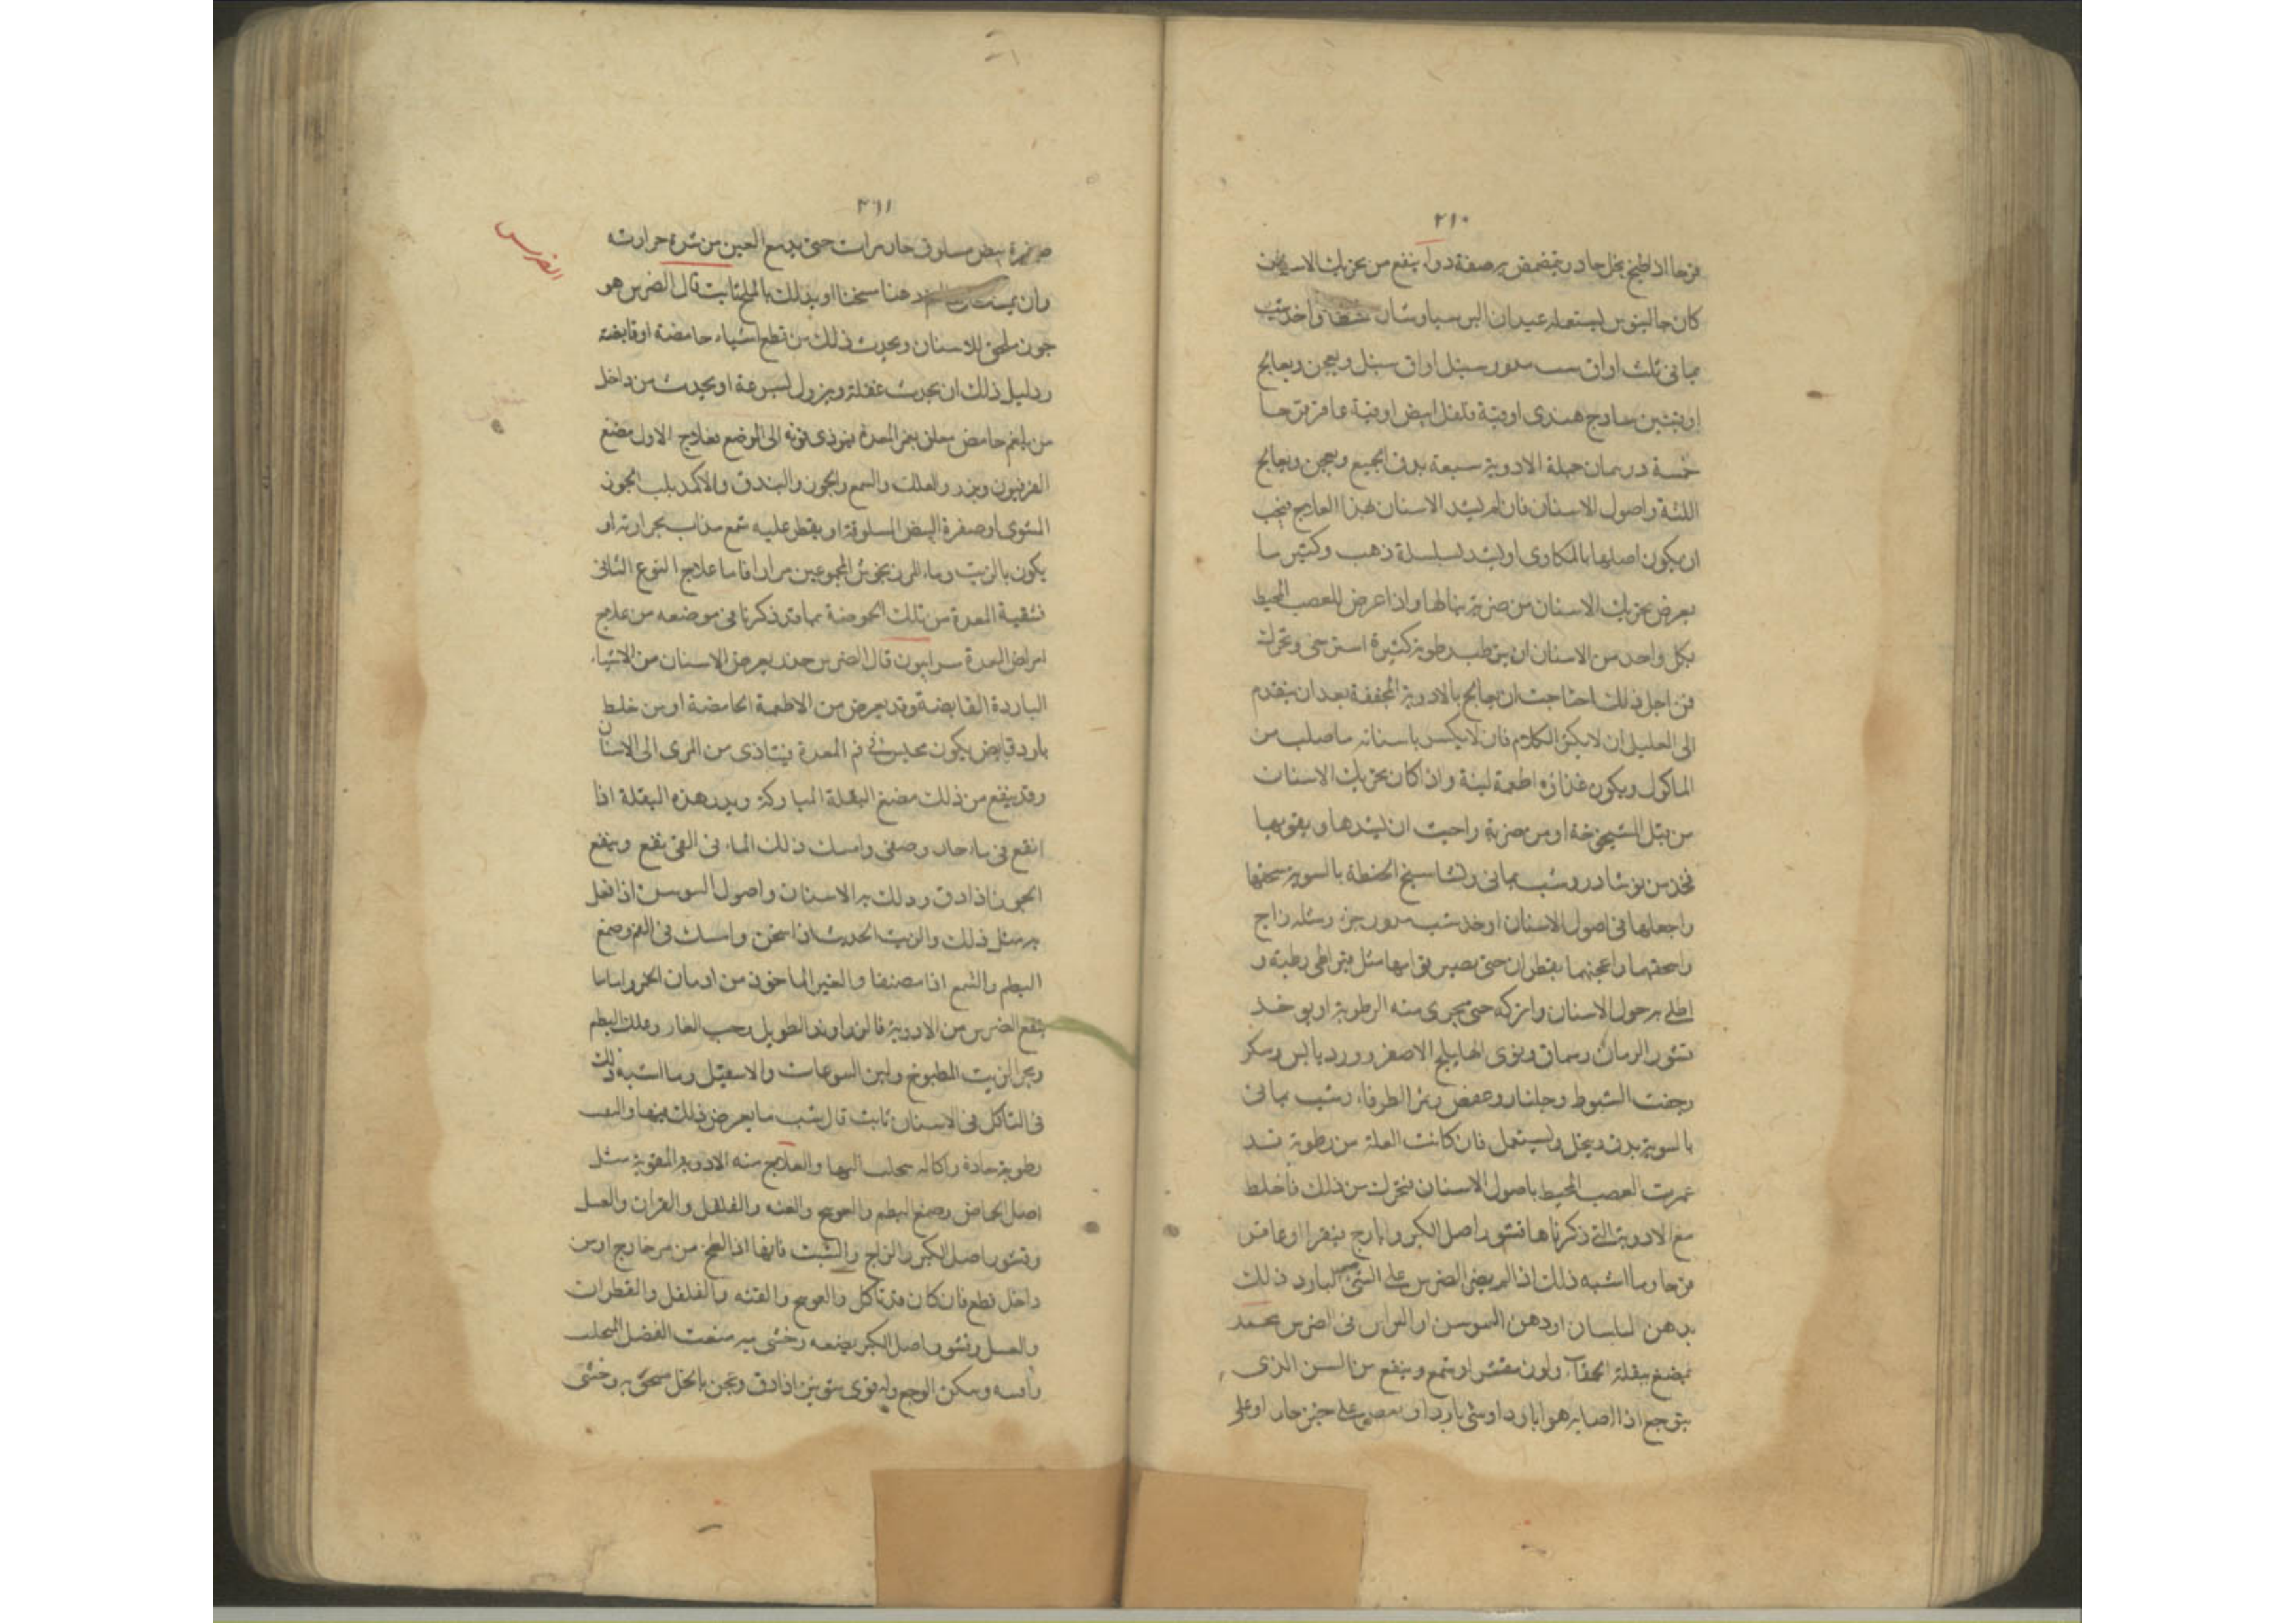 ٢١٠
قرحا اذا طبخ بخل حاد ويتمضمض به صفة دواء ينفع من تحريك الاسنان
كان جالينوس يستعمله عيدان البرسياوشان واخذ شب
يماني ثلث اواق سنبل اواق سنبل ويعجن ويعالج
اوقيتين سادج هندي اوقية فلفل ابيض اوقية عاقرقرحا
خمسة درهمان جملة الادوية سبعة يدق الجميع ويعجن ويعالج
اللثة واصول الاسنان فان لم يشد الاسنان بهذا العلاج فيجب
ان يكون اصلها بالمكاوى او يشد بسلسلة ذهب وكثير ما
يعرض تحريك الاسنان من ضربة ينالها واذا عرض للعصب المحيط
بكل واحد من الاسنان ان يرطب برطوبة كثيرة استرخى وتحركت
فمن اجل ذلك احتاجت ان يعالج بالادوية المجففة بعد ان يتقدم
الى العليل ان لا يكثر الكلام فان لا يكسر باسنانه ما صلب من
الماكول ويكون غذاؤه اطعمة لينة واذا كان تحريك الاسنان
من قبل الشيخوخة او من ضربة واحببت ان يشدها ويقويها
فخذ من نوشادر وشب يماني ونشا سبخ الحنطة بالسوية سحقها
واجعلها في اصول الاسنان او خذ شب مدور جزء ومثله زاج
واسحقهما واعجنهما بقطران حتى يصير قوامها مثل قيراطي رطبة و
اطلي به حول الاسنان واتركه حتى يجرى منه الرطوبة او يوخذ
قشور الرمان وسماق ونوى الهليلج الاصفر وورد يابس وسكر
وجفت البلوط وجلنار وعفص وثمر الطرفاء وشب يماني
بالسوية يدق وينخل ويستعمل فان كانت العلة من رطوبة قد
غمرت العصب المحيط باصول الاسنان فتحركت من ذلك فاخلط
مع الادوية التي ذكرناها قشور اصل الكبر وايارج فيقرا او عاقر
قرحا وما اشبه ذلك اذا لم يضن الضرس على الشئ البارد ذلك
بدهن البلسان او دهن السوسن او الراس في الضرس بحمد
يمضغ ببقلة الحمقاء ولون مقشر او شمع وينفع من السن الذى
يتوجع اذا اصابه هوا بارد او شئ بارد ان يعض على خبز حار او على
٢١١
صفرة بيض مسلوق حار مرات حتى يدمع العين من شدة حرارته
وان يمسك دهنا سخنا او بدلك بالملح ثابت قال الضرس هو
خون ملحق للاسنان ويحدث ذلك من قطع اشياء حامضة او قابضة
ودليل ذلك ان يحدث غفلة ويزول بسرعة او يحدث من داخل
من بلغم حامض معلق بفم المعدة يوذى قوته الى الوضع فعلاج الاول مضغ
الفربيون وبزر والعلك والشمع والجوز والبندق والاكمد بلب الجوز
المشوى او صفرة البيض المسلوقة او يقطر عليه شمع مذاب بحرارته او
يكون بالزيت وماء المرزنجوش المجموعين مرارا فاما علاج النوع الثاني
تنقية المعدة من تلك الحموضة بما قد ذكرنا في موضعه من علاج
امراض المعدة سرابيون قال الضرس حدر يعرض الاسنان من الاشياء
الباردة القابضة وقد يعرض من الاطعمة الحامضة او من خلط
بارد قابض يكون محتبس في فم المعدة يتاذى من المرى الى الاسنان
وقد ينفع من ذلك مضغ البقلة المباركة وبزر هذه البقلة اذا
انقع في ماء حار وصفى وامسك ذلك الماء في الفم ينفع وينفع
الجوز اذا دق ودلك به الاسنان واصول السوسن اذا فعل
به مثل ذلك والزيت الحديث اذا سخن وامسك في الفم وصمغ
البطم والشمع اذا مضغا والقير الماخوذ من اوسان الخرو اما ما
ينفع الضرس من الادوية فالزراوند الطويل وحب الغار وعلك البطم
وبجر الزيت المطبوخ ولبن اليتوعات والاسقيل وما اشبه ذلك
في التاكل في الاسنان ثابت قال سبب ما يعرض ذلك فيها والثقب
رطوبة حادة واكالة يتحلب اليها والعلاج منه الادوية المقوية مثل
اصل الحماض وصمغ البطم والعوسج والقنه والفلفل والقران والعسل
وقشور اصل الكبر والزاج والشبت فانها اذا طبخ من من خارج او من
داخل نطع فان كان قد تاكل والعوسج والقنه والفلفل والقطران
والعسل وقشور اصل الكبر يضعه وحشى به منعت الفضل المتحلب
وامسه ويسكن الوجع وله قوى شونيز اذا دق وعجن بالخل سحق به وحشى
الضرس